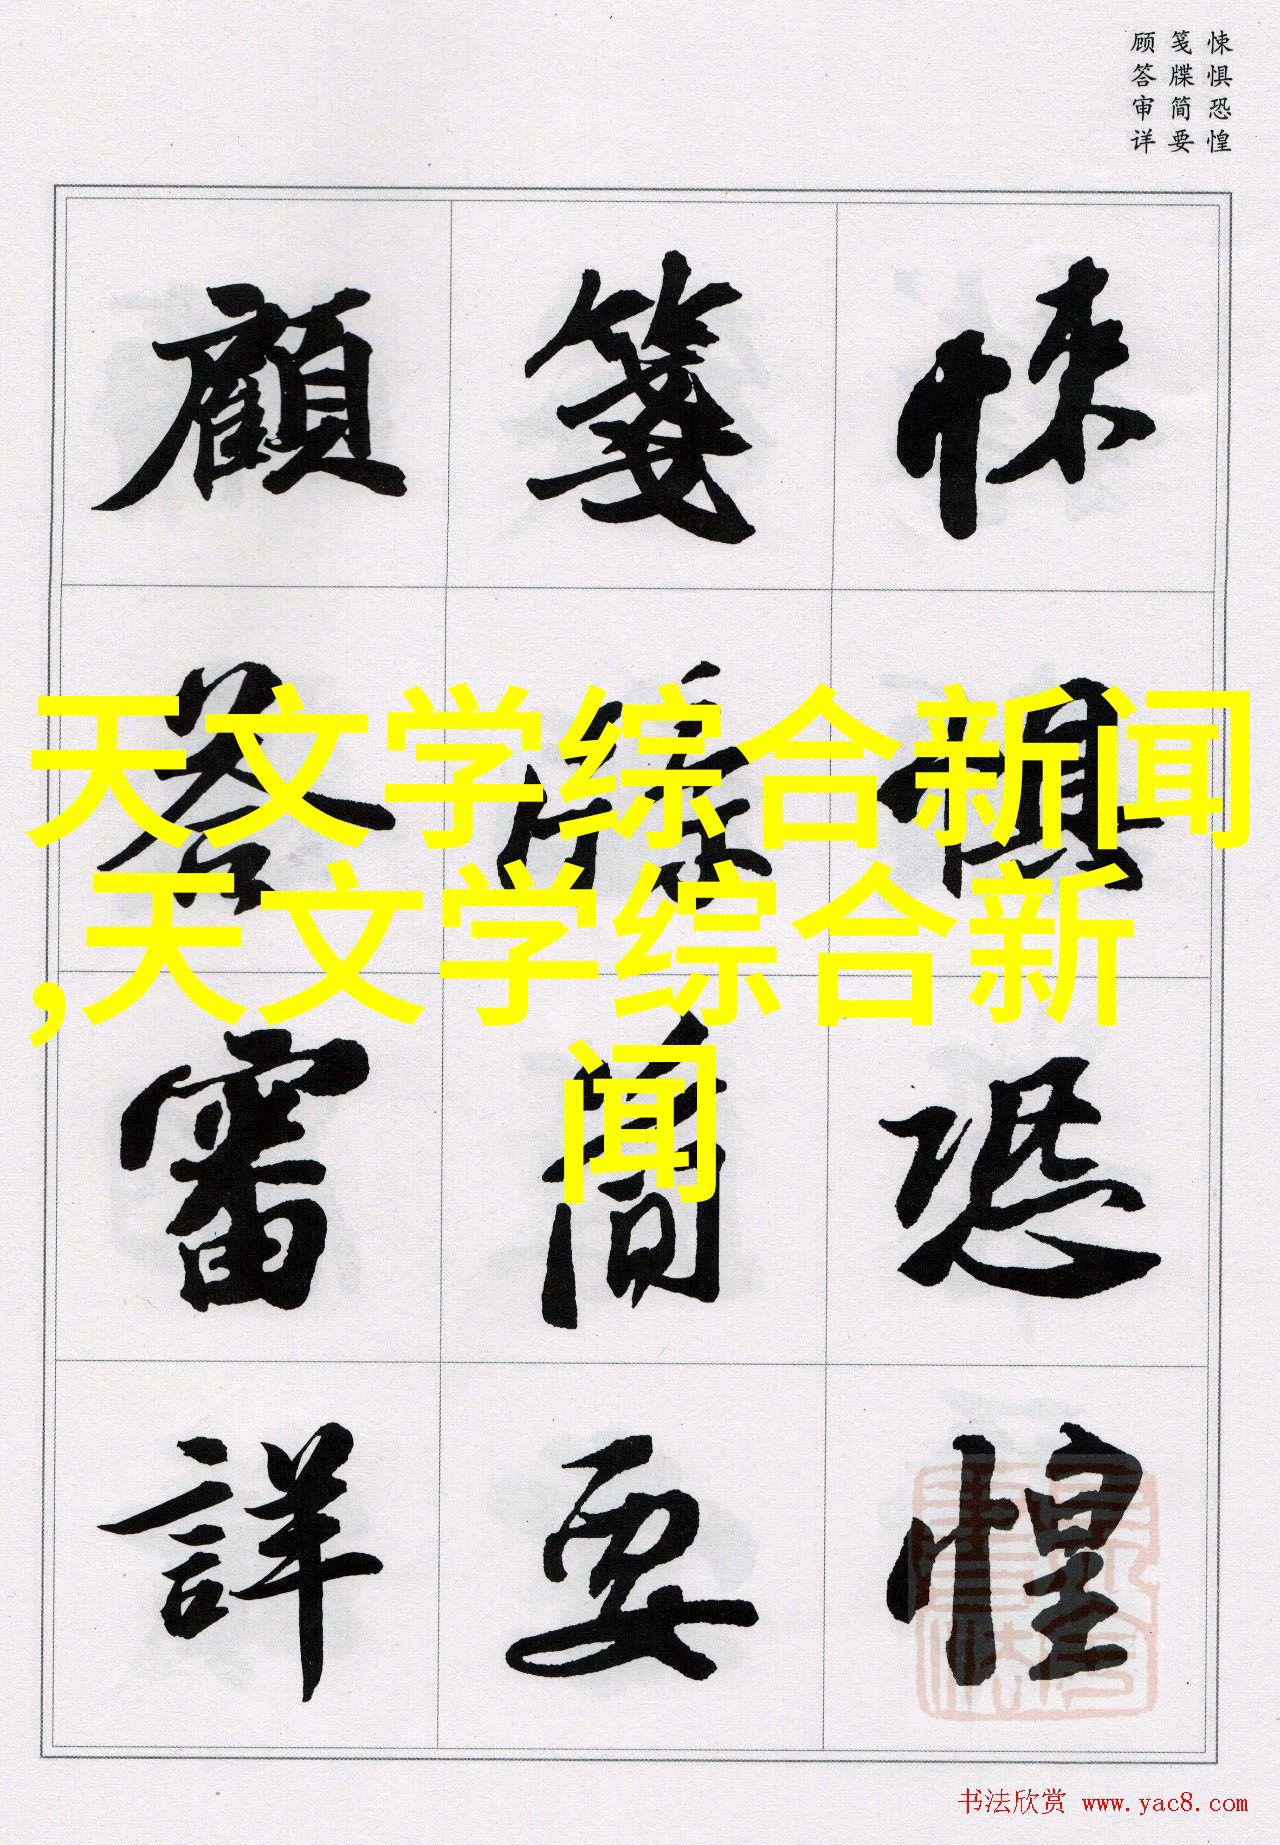 悚惧恐惶
笺牒简要
顾答审详
悚懼恐惶
箋牒簡要
顧答審詳
天文学综合新闻
,天文学综合新
闻
书法欣赏 www.yac8.com